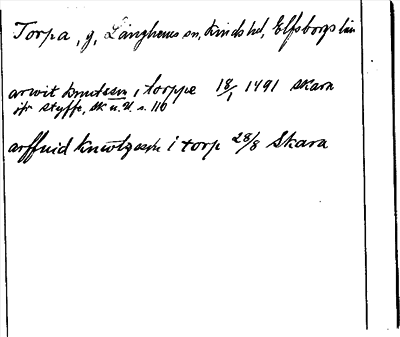 Torpa, g, Länghems sn, Kinds hd, Elfsborgs län
arwit knutssn i torppe 18/1 1491 skara
jfr Styffe, sk u. U. s. 110
arffuid knwtzssn i torp 28/8 Skara